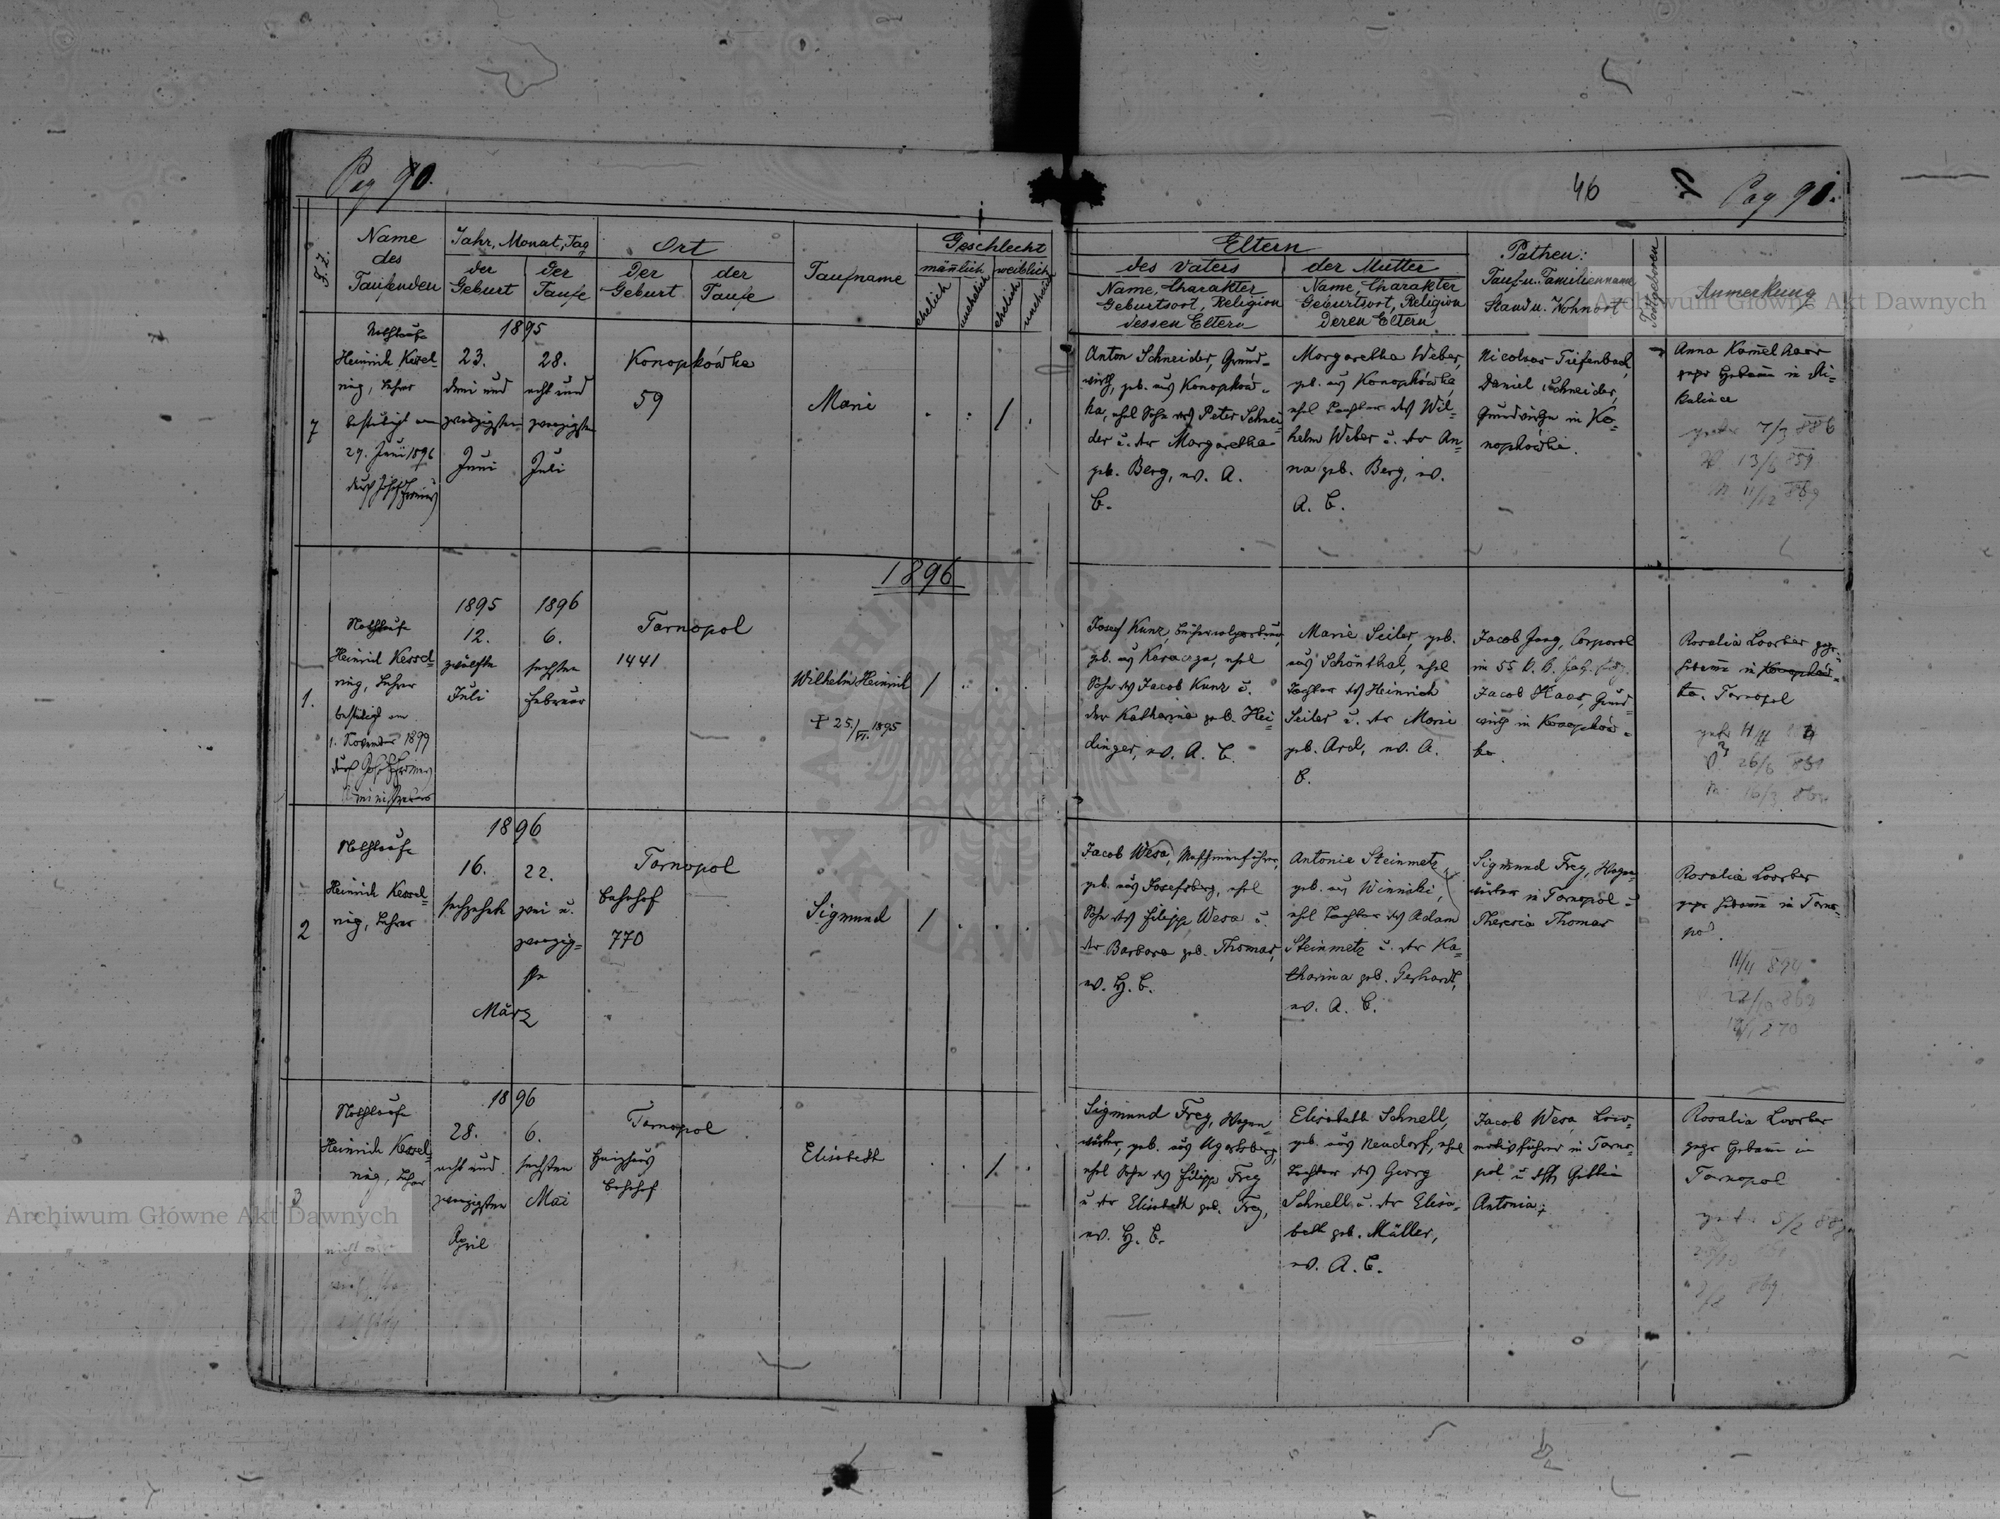 Pag 90.
46
Pag 91.
F. Z.
Name
des
Taufenden
Jahr, Monat, Tag
der
Geburt
der
Taufe
Ort
der
Geburt
der
Taufe
Taufname
Geschlecht
mänlich
weiblich
ehelich
unehelich
ehelich
unehelich
Eltern
des Vaters
Name, Charakter
Geburtsort, Religion
dessen Eltern
der Mutter
Name, Charakter
Geburtsort, Religion
deren Eltern
Pathen:
Tauf- u. Familienname,
Stand u. Wohnort
Todtgeboren
Anmerkung
7
Nothtaufe
Heinrich Kessel-
nig, Lehrer
bestätigt am
29. Juni 1896
durch Josef
1895
23.
drei und
zwanzigsten
Juni
28.
acht und
zwanzigste
Juli
Konopkówka
59
Marie
/
Anton Schneider, Grund-
wirth, geb. aus Konopków-
ka, ehel Sohn des Peter Schnei
der u. der Margaretha
geb. Berg, ev. A.
C.
Margaretha Weber,
geb. aus Konopkówka,
ehel Tochter des Wil-
helm Weber u. der An-
na geb. Berg, ev.
A. C.
Nicolaus Tiefenbach,
Daniel Schneider,
Grundwirthe in Ko-
nopkówka.
Anna Kamel Aaar
gepr Hebamme in Mi-
kulince
7/3 886
13/6 851
11/12 889
1896
1.
Nothtaufe
Heinrich Kessel-
nig, Lehrer
bestätigt am
1. November 1899
durch Josef
Administrator
1895
12.
zwölfte
Juli
1896
6.
sechsten
Februar
Tarnopol
1441
Wilhelm Heinrich
+ 25./VI. 1895
/
Josef Kunz,
geb. aus Karaczga, ehel
Sohn des Jacob Kunz u.
der Katharina geb. Hei
dinger, ev. A. C.
Marie Seiler, geb.
aus Schönthal, ehel
Tochter des Heinrich
Seiler u. der Marie
geb. Ard, ev. A.
C.
Jacob Jung, Corporal
im 55
Jacob Haas, Grund-
wirth in Konopków-
ka.
Rosalia Loorber gepr.
Hebamme in Konopków-
ka. Tarnopol
26/6 851
16/3
2
Nothtaufe
Heinrich Kessel-
nig, Lehrer
1896
16.
sechzehnte
22.
zwei u.
zwanzig-
ste
März
Tarnopol
Bahnhof
770
Sigmund
/
Jacob Wesa, Maschinenführer,
geb. aus Josefsberg, ehel
Sohn des Filipp Wesa u.
der Barbara geb. Thomas,
ev. H. C.
Antonie Steinmetz,
geb. aus Winniki,
ehel Tochter des Adam
Steinmetz u. der Ka-
tharina geb. Gerhardt,
ev. A. C.
Sigmund Frey, Wagen-
wärter in Tarnopol u
Theresia Thomas
Rosalia Loorber
gepr Hebamme in Tarno-
pol.
11/4 894
3
Nothtaufe
Heinrich Kessel-
nig, Lehrer
1896
28.
acht und
zwanzigsten
April
6.
sechsten
Mai
Tarnopol
Heizhaus
Bahnhof
Elisabeth
/
Sigmund Frey, Wagen-
wärter, geb. aus Ugartsberg,
ehel Sohn des Filipp Frey
u. der Elisabeth geb. Frey,
ev. H. C.
Elisabeth Schnell,
geb. aus Neudorf, ehel
Tochter des Georg
Schnell u. der Elisa-
beth geb. Müller,
ev. A. C.
Jacob Wesa, Loco-
motivführer in Tarno-
pol u. dess Gattin
Antonia
Rosalia Loorber
gepr Hebamme in
Tarnopol
Archiwum Główne Akt Dawnych
Archiwum Główne Akt Dawnych